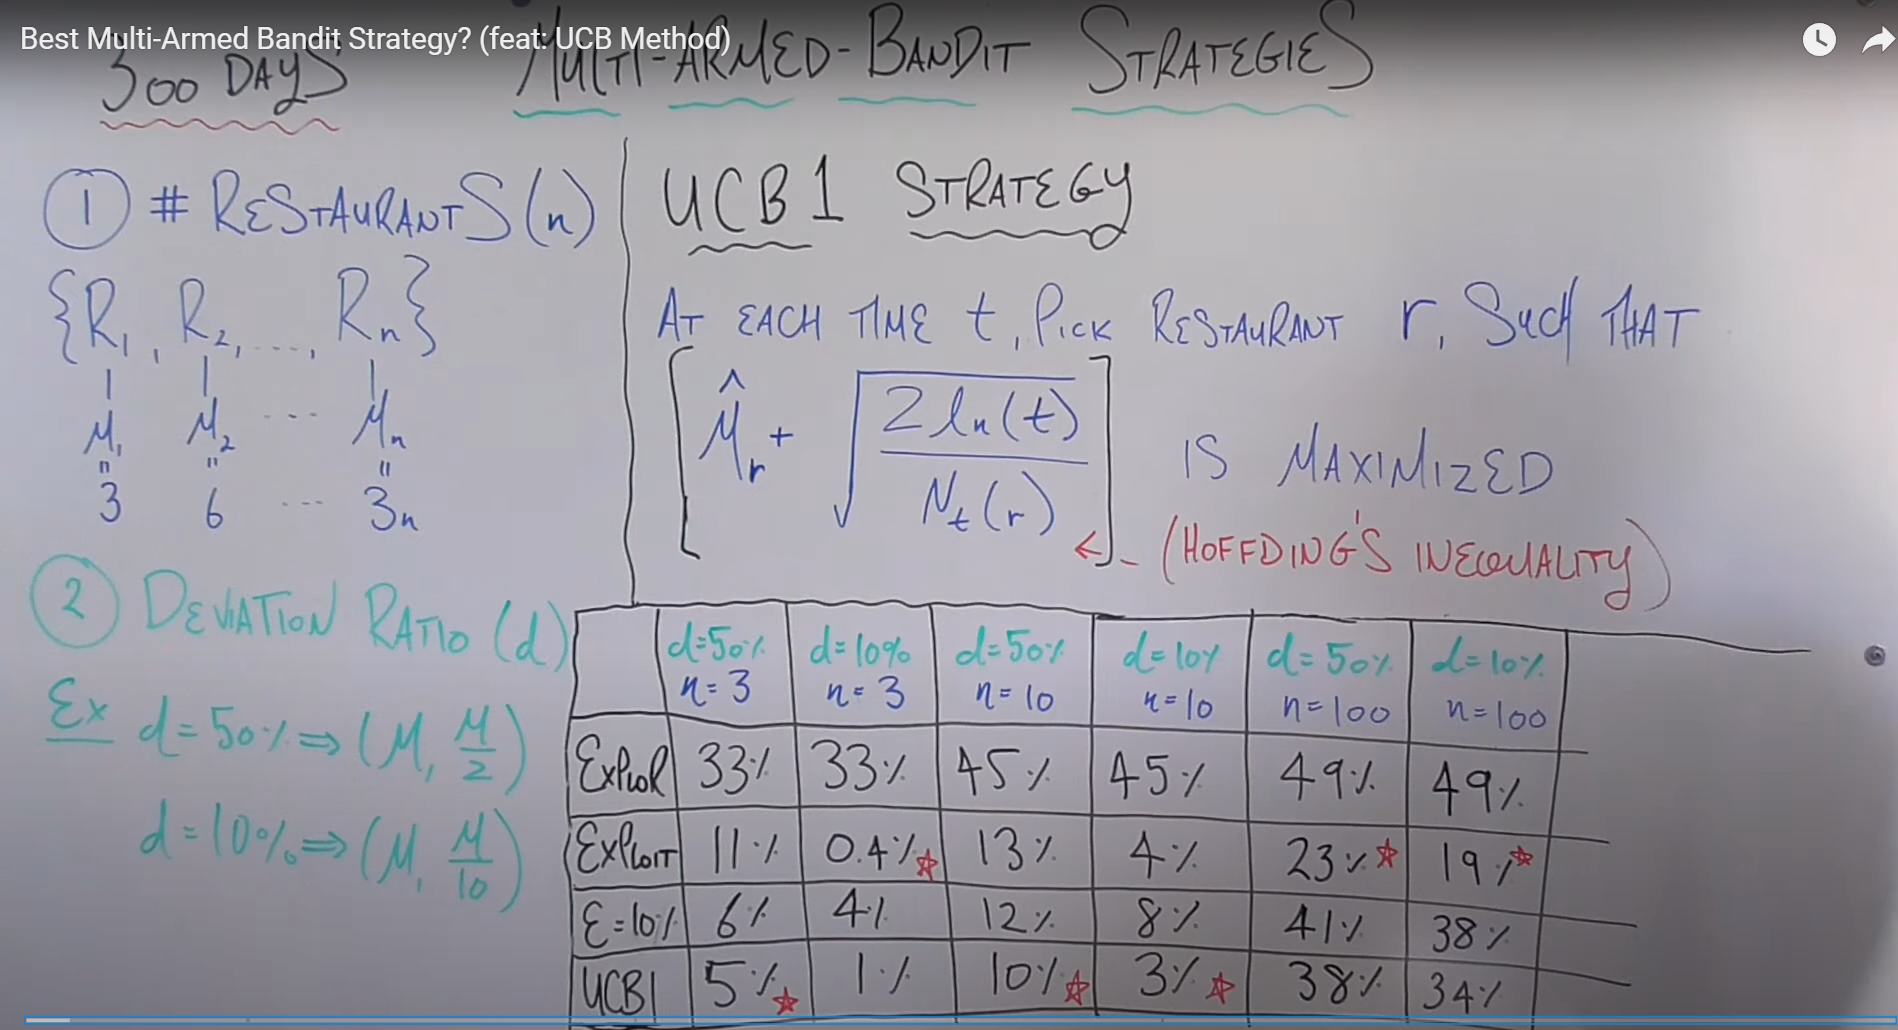 Best Multi-Armed Bandit Strategy? (feat: UCB Method)
300 DAYS
MULTI-ARMED-BANDIT STRATEGIES
1 # RESTAURANTS (n)
{R₁, R₂, ..., Rₙ}
μ₁ μ₂ ... μₙ
" " "
3 6 ... 3n
2 DEVIATION RATIO (d)
Ex d=50% ⇒ (μ, μ/2)
d=10% ⇒ (μ, μ/10)
UCB1 STRATEGY
AT EACH TIME t, PICK RESTAURANT r, SUCH THAT
[μ̂ᵣ + √(2 ln(t) / Nₜ(r))] IS MAXIMIZED
← - (HOFFDING'S INEQUALITY)
d=50% d=10% d=50% d=10% d=50% d=10%
n=3 n=3 n=10 n=10 n=100 n=100
EXPLOR 33% 33% 45% 45% 49% 49%
EXPLOIT 11% 0.4%☆ 13% 4% 23%☆ 19%☆
ε=10% 6% 4% 12% 8% 41% 38%
UCB1 5%☆ 1% 10%☆ 3%☆ 38% 34%